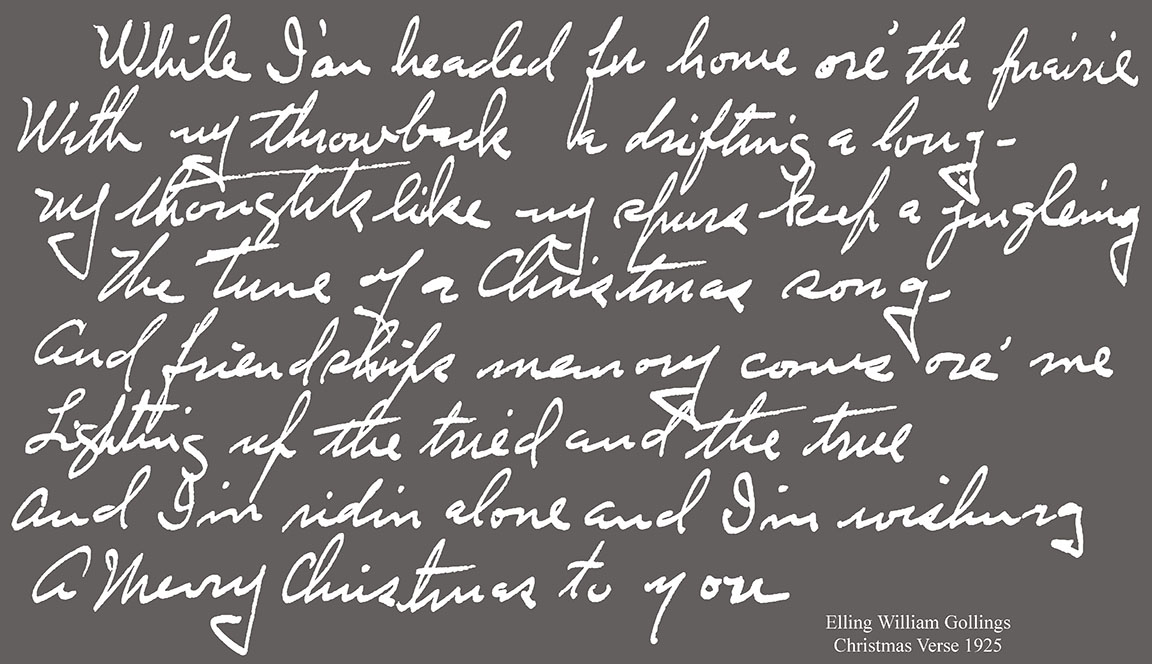 While I'am headed for home ore' the prairie
With my throwback a drifting a long-
my thoughts like my spurs keep a jingleing
The tune of a Christmas song-
And friendships memory comes ore' me
Lighting up the tried and the true
And I'm ridin alone and I'm wishing
A Merry Christmas to you
Elling William Gollings
Christmas Verse 1925